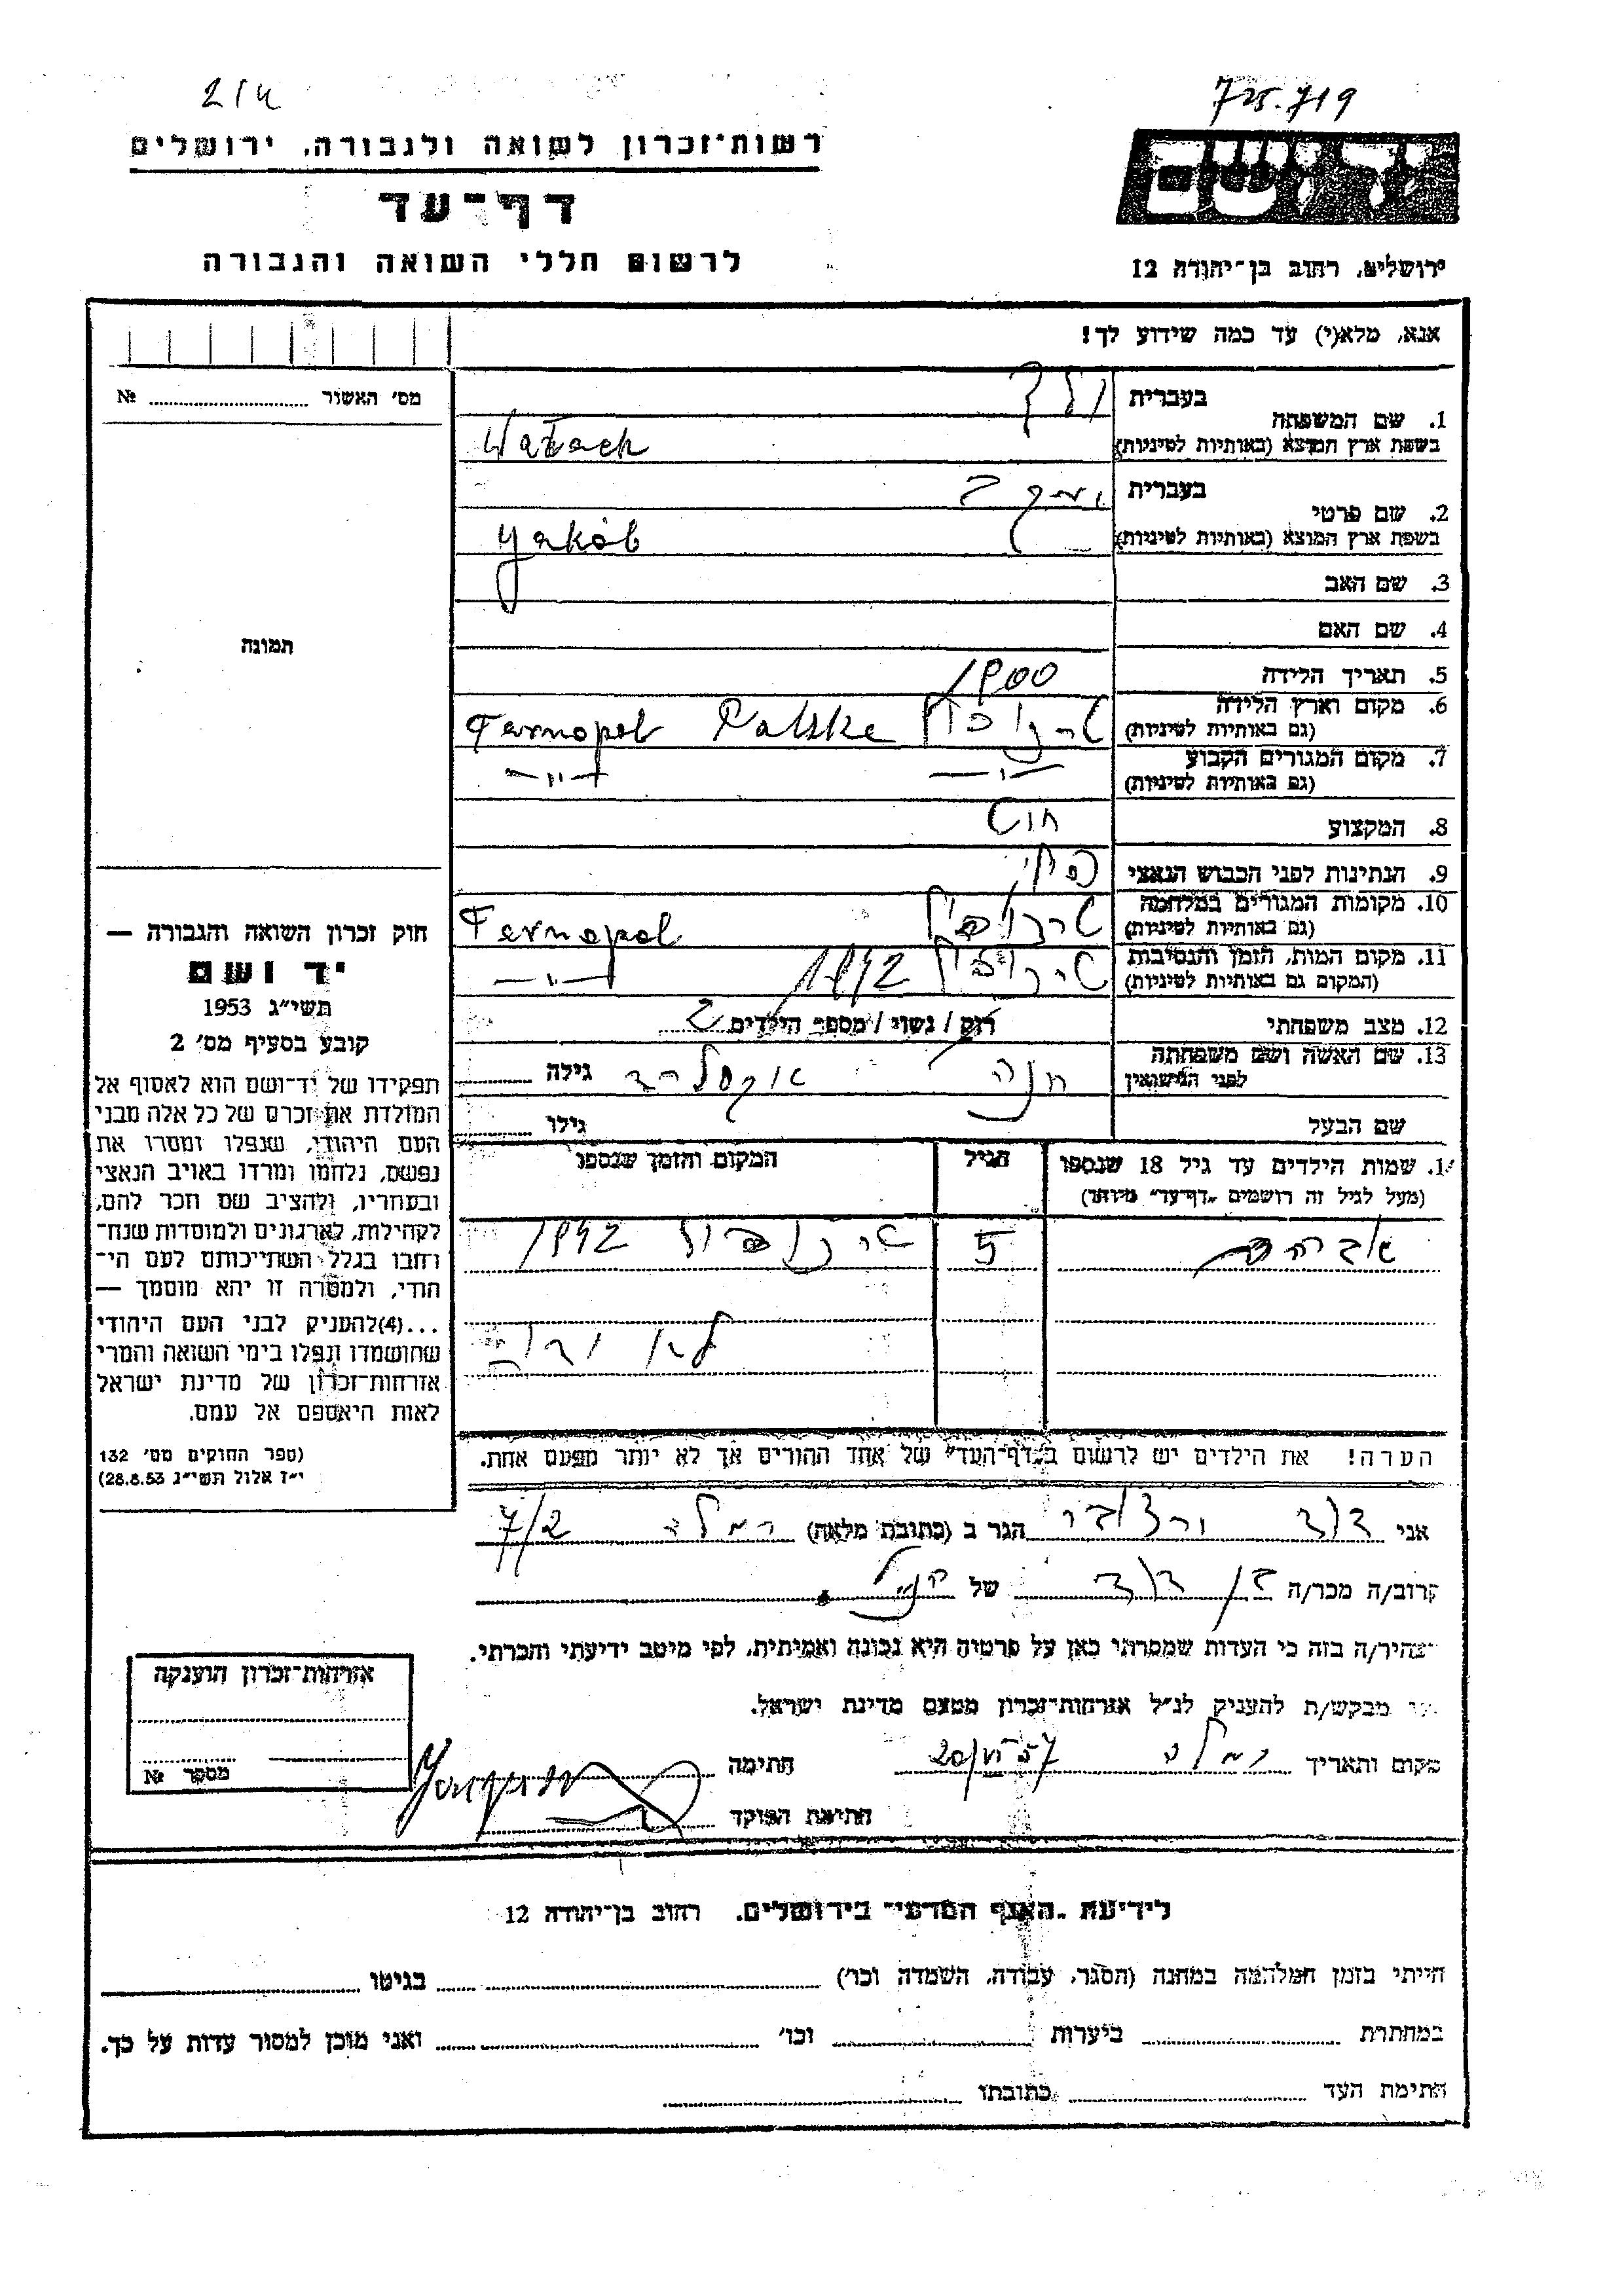 2/4
725.719
רשות־זכרון לשואה ולגבורה, ירושלים
יד ושם
דף־עד
לרשום חללי השואה והגבורה
ירושלים, רחוב בן־יהודה 12
אנא, מלא(י) עד כמה שידוע לך!
מס׳ האשור № 
1. שם המשפחה בעברית ולך
בשפת ארץ המוצא (באותיות לטיניות) Wałach
2. שם פרטי בעברית יעקב
בשפת ארץ המוצא (באותיות לטיניות) Yakób
3. שם האב
4. שם האם
תמונה
5. תאריך הלידה 1900
6. מקום וארץ הלידה (גם באותיות לטיניות) טרנופול Tarnopol Polske
7. מקום המגורים הקבוע (גם באותיות לטיניות) —״— —״—
8. המקצוע
9. הנתינות לפני הכבוש הנאצי פולני
10. מקומות המגורים במלחמה (גם באותיות לטיניות) טרנופול Tarnopol
11. מקום המות, הזמן והנסיבות (המקום גם באותיות לטיניות) טרנופול 1942 —״—
12. מצב משפחתי רווק / נשוי / מספר הילדים 2
13. שם האשה ושם משפחתה לפני הנישואין חנה גילה
שם הבעל גילו
חוק זכרון השואה והגבורה —
יד ושם
תשי״ג 1953
קובע בסעיף מס׳ 2
תפקידו של יד־ושם הוא לאסוף אל
המולדת את זכרם של כל אלה מבני
העם היהודי, שנפלו ומסרו את
נפשם, נלחמו ומרדו באויב הנאצי
ובעוזריו, ולהציב שם וזכר להם,
לקהילות, לארגונים ולמוסדות שנח־
רבו בגלל השתייכותם לעם הי־
הודי, ולמטרה זו יהא מוסמך —
...(4) להעניק לבני העם היהודי
שהושמדו ונפלו בימי השואה והמרי
אזרחות־זכרון של מדינת ישראל
לאות היאספם אל עמם.
(ספר החוקים מס׳ 132
י״ז אלול תשי״ג 28.8.53)
14. שמות הילדים עד גיל 18 שנספו הגיל המקום והזמן שנספו
(מעל לגיל זה רושמים „דף־עד״ מיוחד)
אברהם 5 טרנופול 1942
הערה! את הילדים יש לרשום ב„דף־העד״ של אחד ההורים אך לא יותר מפעם אחת.
אני דוד הגר ב (כתובת מלאה) רמלה 7/2
קרוב/ה מכר/ה בן דוד של
מצהיר/ה בזה כי העדות שמסרתי כאן על פרטיה היא נכונה ואמיתית, לפי מיטב ידיעתי והכרתי.
אני מבקש/ת להעניק לנ״ל אזרחות־זכרון מטעם מדינת ישראל.
מקום ותאריך רמלה 20/VI 57 חתימה
חתימת הפוקד
אזרחות־זכרון הוענקה
מספר №
לידיעת „האגף המדעי״ בירושלים, רחוב בן־יהודה 12
הייתי בזמן המלחמה במחנה (הסגר, עבודה, השמדה וכו׳) בגיטו
במחתרת ביערות וכו׳ ואני מוכן למסור עדות על כך.
חתימת העד כתובתו